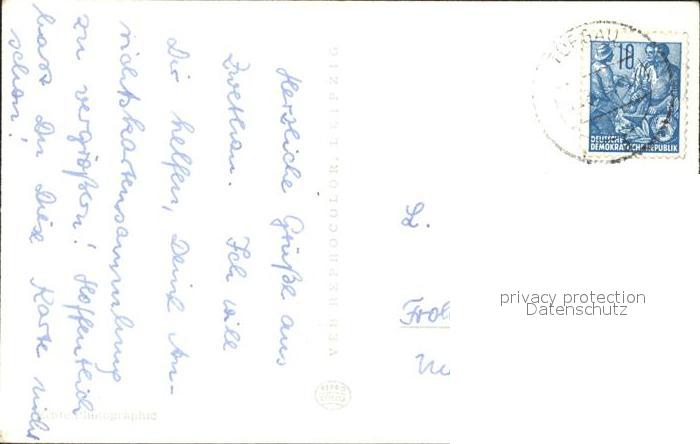 Herzliche Grüße aus
Zwethau. Ich will
Dir helfen, Deine An-
sichtskartensammlung
zu vergrößern! Hoffentlich
hast Du diese Karte nicht
schon!
VEB REPROCOLOR, LEIPZIG
Echte Photographie
TORGAU
10
DEUTSCHE
DEMOKRATISCHE REPUBLIK
privacy protection
Datenschutz